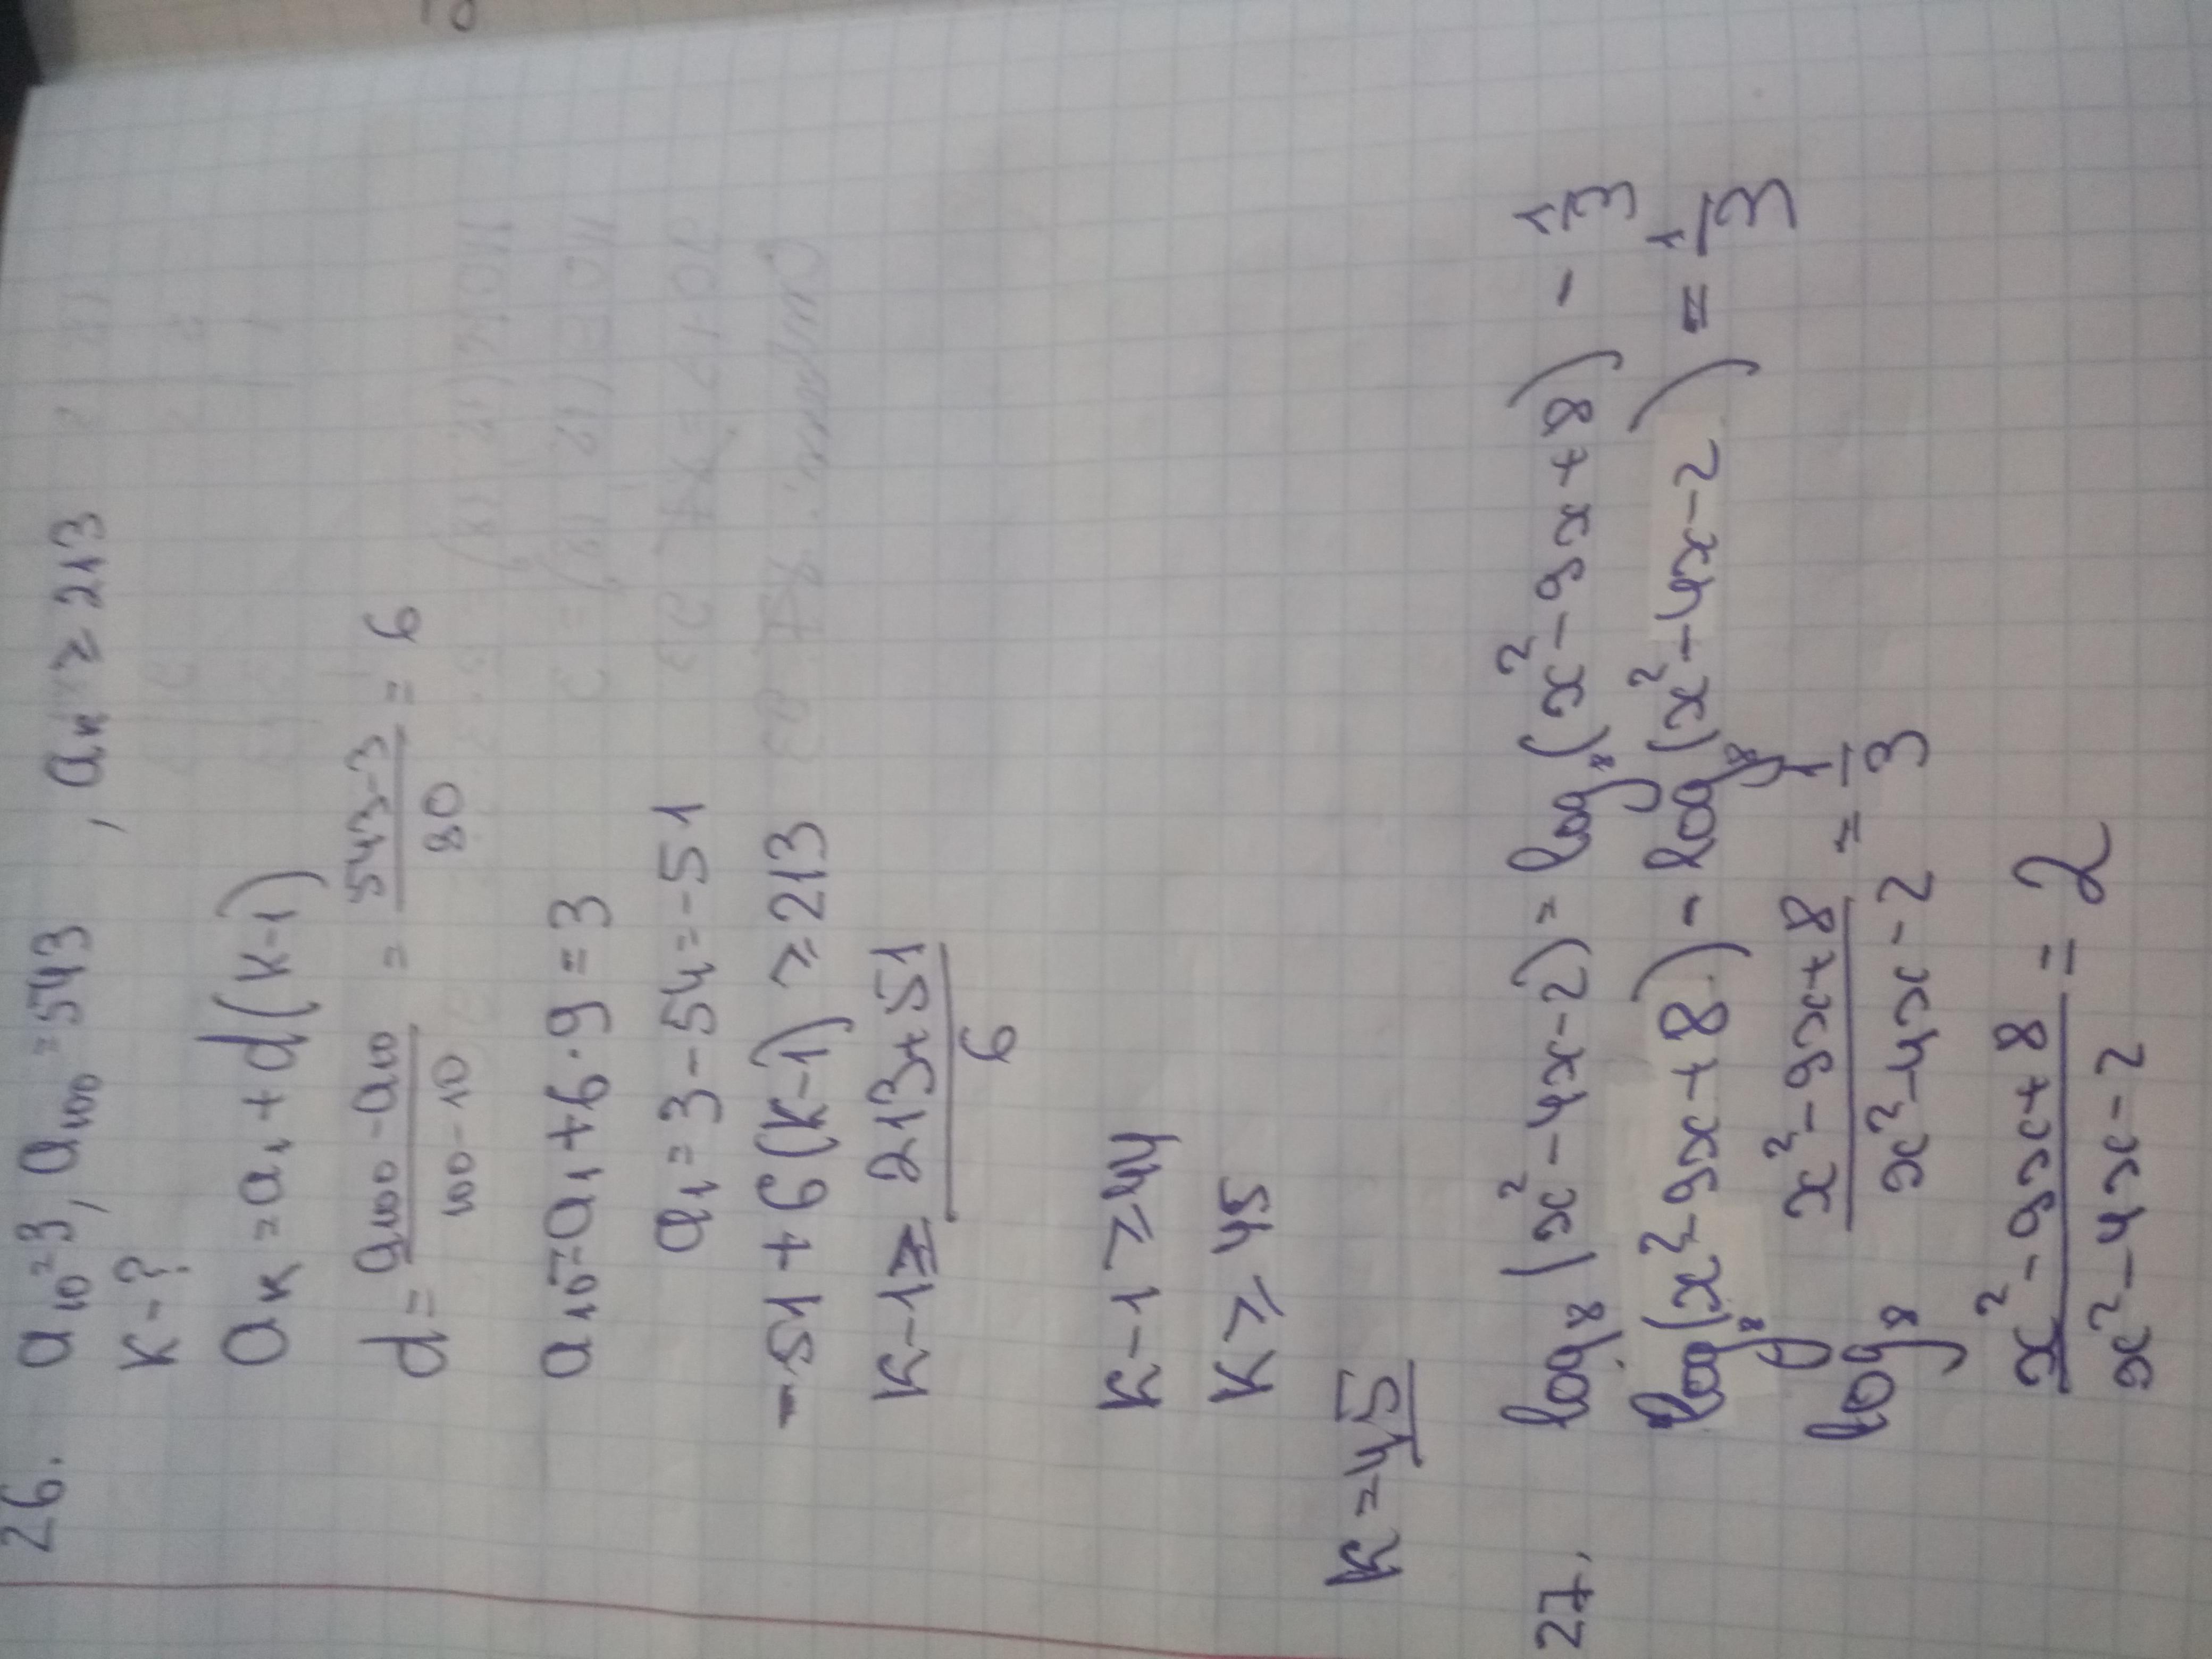 26. a₁₀=3, a₁₀₀=543, aₖ ≥ 213
K-?
aₖ = a₁ + d(K-1)
d = (a₁₀₀ - a₁₀)/(100 - 10) = (543-3)/90 = 6
a₁₀ = a₁ + 6·9 = 3
a₁ = 3 - 54 = -51
-51 + 6(K-1) ≥ 213
K-1 ≥ (213+51)/6
K-1 ≥ 44
K ≥ 45
K = 45
27. log₈(x²-4x-2) = log₈(x²-9x+8) - 1/3
log₈(x²-9x+8) - log₈(x²-4x-2) = 1/3
log₈ (x²-9x+8)/(x²-4x-2) = 1/3
(x²-9x+8)/(x²-4x-2) = 2